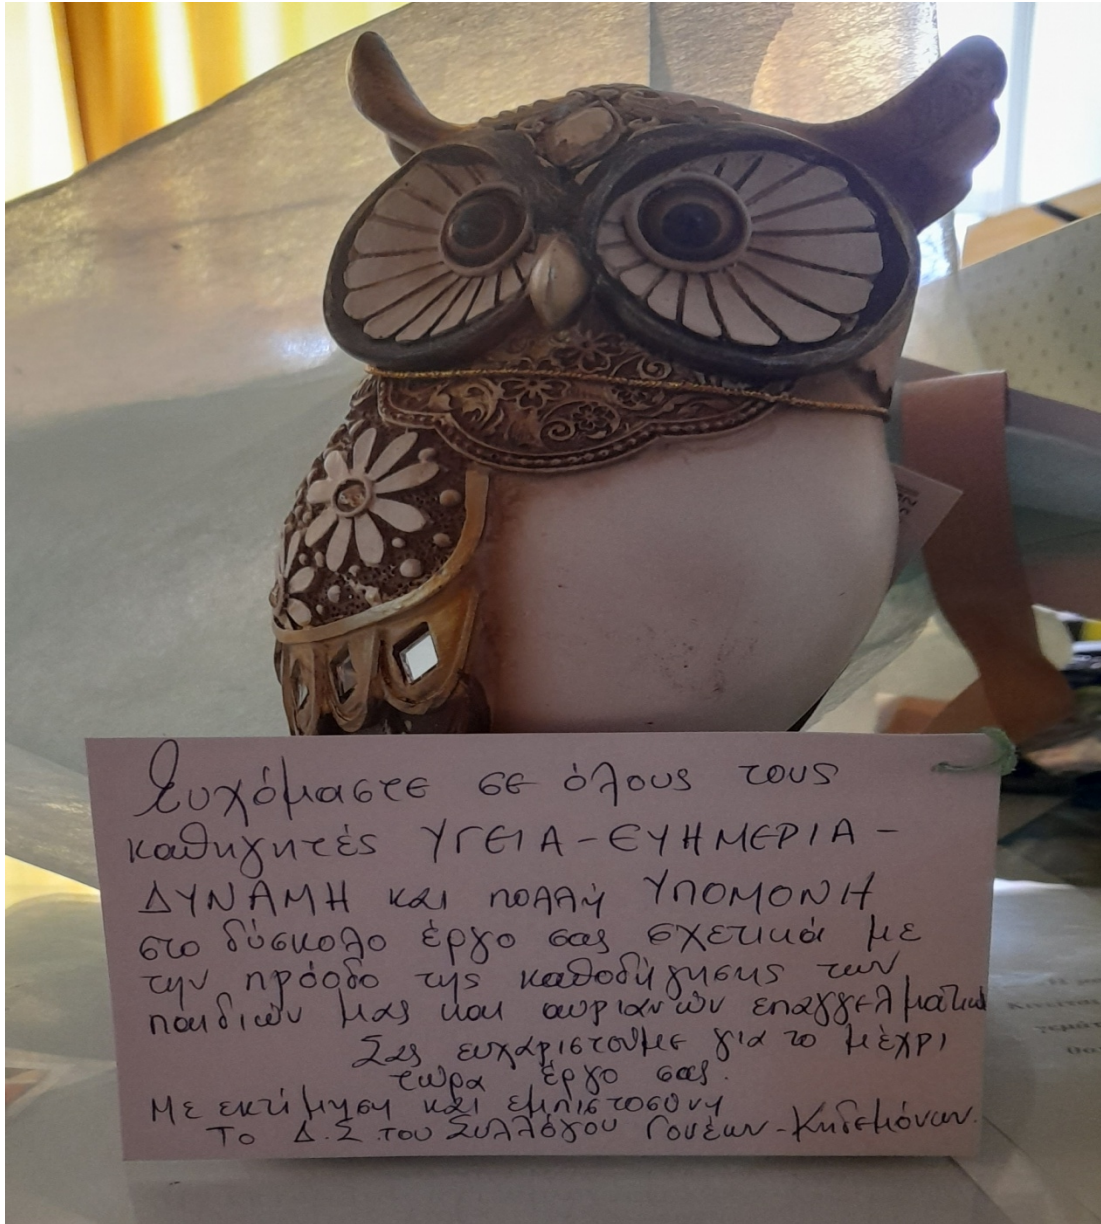 Ευχόμαστε σε όλους τους
καθηγητές ΥΓΕΙΑ-ΕΥΗΜΕΡΙΑ-
ΔΥΝΑΜΗ και πολλή ΥΠΟΜΟΝΗ
στο δύσκολο έργο σας σχετικά με
την πρόοδο της καθοδήγησης των
παιδιών μας και αυριανών επαγγελματιών
Σας ευχαριστούμε για το μέχρι
τώρα έργο σας.
Με εκτίμηση και εμπιστοσύνη
Το Δ.Σ του Συλλόγου Γονέων-Κηδεμόνων.